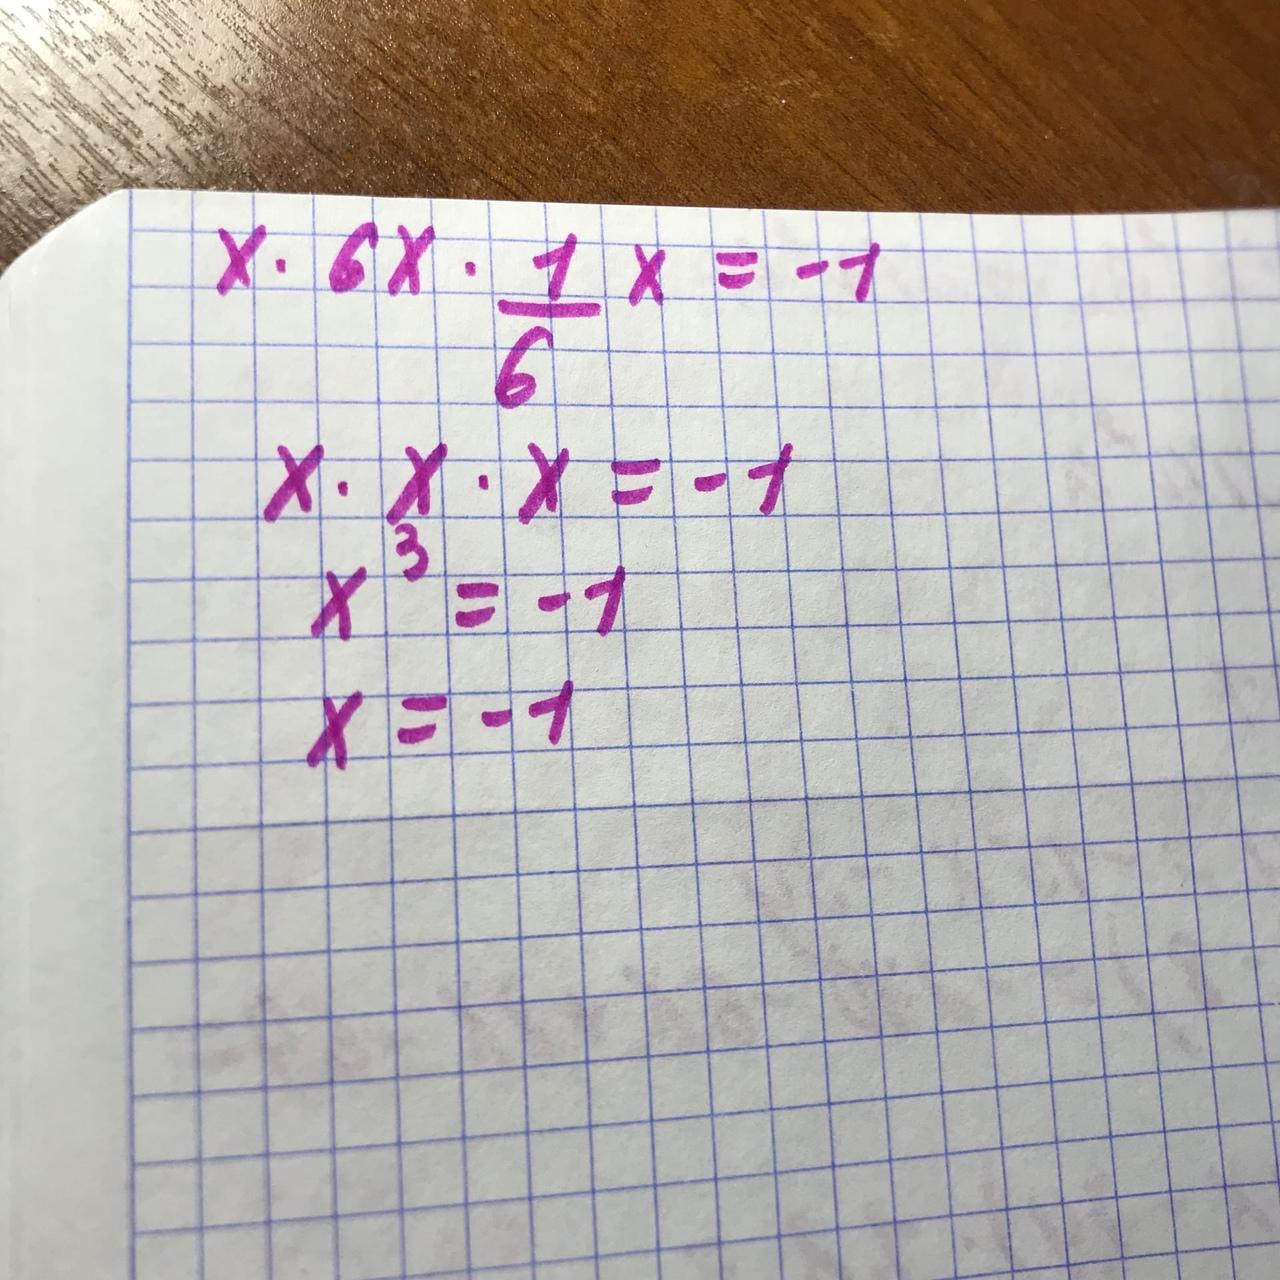 x · 6x · 1/6 x = -1
x · x · x = -1
x³ = -1
x = -1